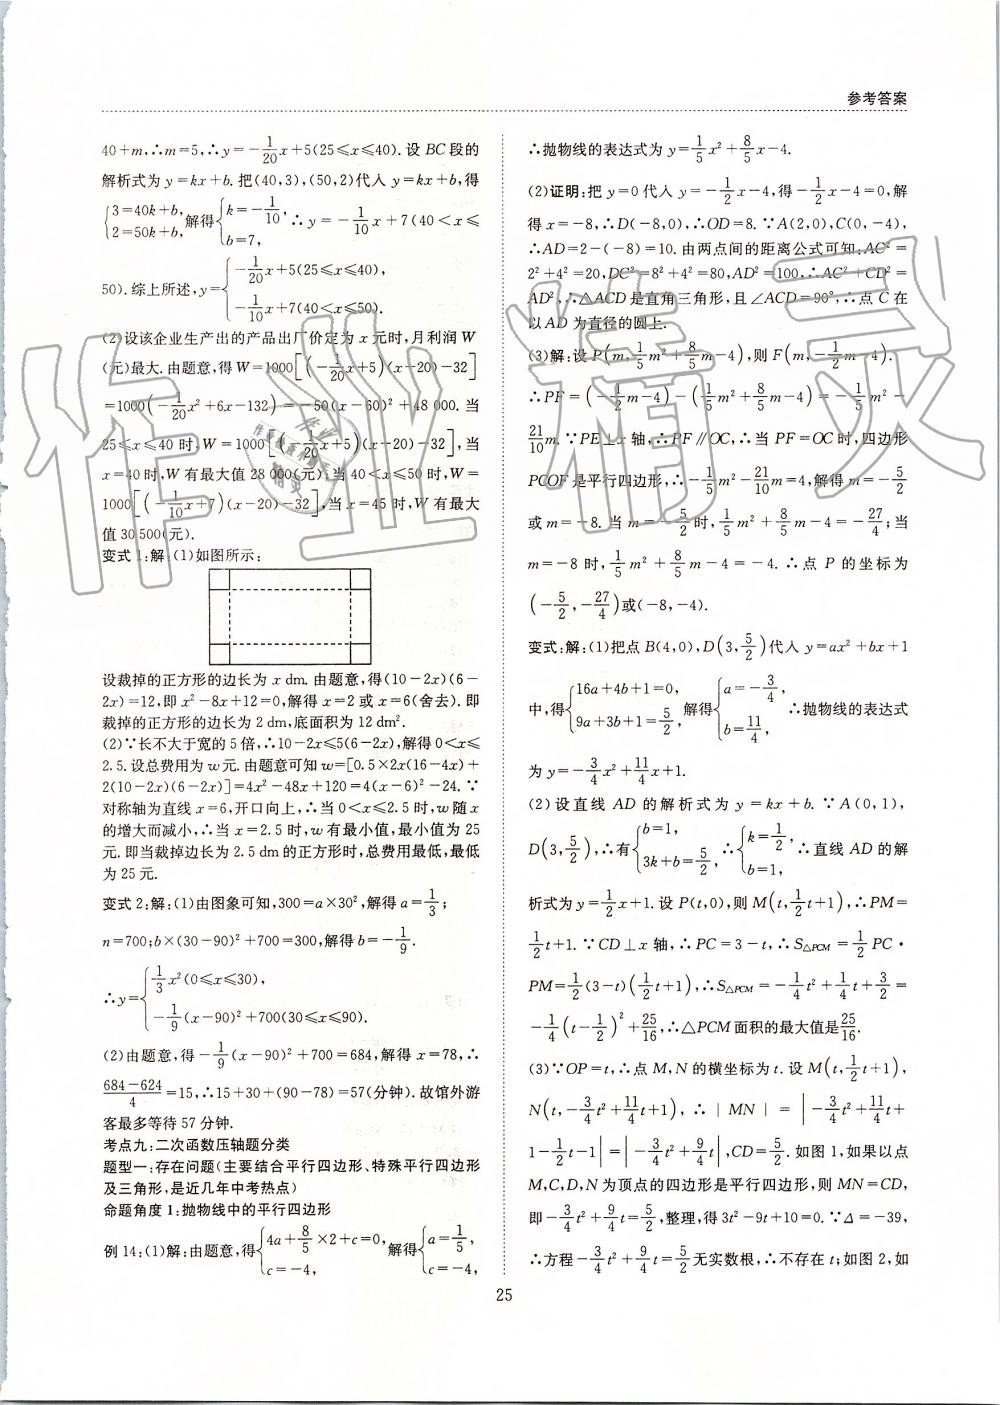 参考答案
40+m,∴m=5,∴y=-1/20x+5(25≤x≤40). 设 BC 段的
解析式为 y=kx+b. 把(40,3),(50,2)代入 y=kx+b,得
{3=40k+b, 2=50k+b, 解得{k=-1/10, b=7, ∴y=-1/10x+7(40<x≤
50). 综上所述,y={-1/20x+5(25≤x≤40), -1/10x+7(40<x≤50).
(2)设该企业生产出的产品出厂价定为 x 元时,月利润 W
(元)最大. 由题意,得 W=1000[(-1/20x+5)(x-20)-32]
=1000(-1/20x²+6x-132)=-50(x-60)²+48 000. 当
25≤x≤40 时 W=1000[(-1/20x+5)(x-20)-32],当
x=40 时,W 有最大值 28 000(元),当 40<x≤50 时,W=
1000[(-1/10x+7)(x-20)-32],当 x=45 时,W 有最大
值 30 500(元).
变式 1:解:(1)如图所示:
设裁掉的正方形的边长为 x dm. 由题意,得(10-2x)(6-
2x)=12,即 x²-8x+12=0,解得 x=2 或 x=6(舍去). 即
裁掉的正方形的边长为 2 dm,底面积为 12 dm².
(2)∵长不大于宽的 5 倍,∴10-2x≤5(6-2x),解得 0<x≤
2.5. 设总费用为 w 元. 由题意可知 w=[0.5×2x(16-4x)+
2(10-2x)(6-2x)]=4x²-48x+120=4(x-6)²-24. ∵
对称轴为直线 x=6,开口向上,∴当 0<x≤2.5 时,w 随 x
的增大而减小,∴当 x=2.5 时,w 有最小值,最小值为 25
元. 即当裁掉边长为 2.5 dm 的正方形时,总费用最低,最低
为 25 元.
变式 2:解:(1)由图象可知,300=a×30²,解得 a=1/3;
n=700;b×(30-90)²+700=300,解得 b=-1/9.
∴y={1/3x²(0≤x≤30), -1/9(x-90)²+700(30≤x≤90).
(2)由题意,得-1/9(x-90)²+700=684,解得 x=78,∴
684-624/4=15,∴15+30+(90-78)=57(分钟). 故馆外游
客最多等待 57 分钟.
考点九:二次函数压轴题分类
题型一:存在问题(主要结合平行四边形、特殊平行四边形
及三角形,是近几年中考热点)
命题角度 1:抛物线中的平行四边形
例 14:(1)解:由题意,得{4a+8/5×2+c=0, c=-4, 解得{a=1/5, c=-4,
∴抛物线的表达式为 y=1/5x²+8/5x-4.
(2)证明:把 y=0 代入 y=-1/2x-4,得-1/2x-4=0,解
得 x=-8,∴D(-8,0),∴OD=8. ∵A(2,0),C(0,-4),
∴AD=2-(-8)=10. 由两点间的距离公式可知:AC²=
2²+4²=20,DC²=8²+4²=80,AD²=100,∴AC²+CD²=
AD²,∴△ACD 是直角三角形,且∠ACD=90°,∴点 C 在
以 AD 为直径的圆上.
(3)解:设 P(m,1/5m²+8/5m-4),则 F(m,-1/2m-4).
∴PF=(-1/2m-4)-(1/5m²+8/5m-4)=-1/5m²-
21/10m. ∵PE⊥x 轴,∴PF∥OC,∴当 PF=OC 时,四边形
PCOF 是平行四边形,∴-1/5m²-21/10m=4,解得 m=-5/2
或 m=-8. 当 m=-5/2时,1/5m²+8/5m-4=-27/4;当
m=-8 时,1/5m²+8/5m-4=-4. ∴点 P 的坐标为
(-5/2,-27/4)或(-8,-4).
变式:解:(1)把点 B(4,0),D(3,5/2)代入 y=ax²+bx+1
中,得{16a+4b+1=0, 9a+3b+1=5/2, 解得{a=-3/4, b=11/4, ∴抛物线的表达式
为 y=-3/4x²+11/4x+1.
(2)设直线 AD 的解析式为 y=kx+b. ∵A(0,1),
D(3,5/2),∴有{b=1, 3k+b=5/2, ∴{k=1/2, b=1, ∴直线 AD 的解
析式为 y=1/2x+1. 设 P(t,0),则 M(t,1/2t+1),∴PM=
1/2t+1. ∵CD⊥x 轴,∴PC=3-t,∴S△PCM=1/2PC·
PM=1/2(3-t)(1/2t+1),∴S△PCM=-1/4t²+1/4t+3/2=
-1/4(t-1/2)²+25/16,∴△PCM 面积的最大值是25/16.
(3)∵OP=t,∴点 M,N 的横坐标为 t. 设 M(t,1/2t+1),
N(t,-3/4t²+11/4t+1),∴|MN|=|-3/4t²+11/4t+
1-1/2t-1|=|-3/4t²+9/4t|,CD=5/2. 如图 1,如果以点
M,C,D,N 为顶点的四边形是平行四边形,则 MN=CD,
即-3/4t²+9/4t=5/2,整理,得 3t²-9t+10=0. ∵Δ=-39,
∴方程-3/4t²+9/4t=5/2无实数根,∴不存在 t;如图 2,如
25
作业精灵